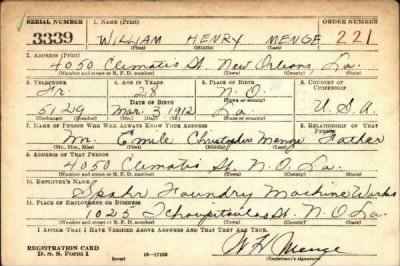 SERIAL NUMBER 1. NAME (Print) ORDER NUMBER
3339 WILLIAM HENRY MENGE 221
(First) (Middle) (Last)
2. ADDRESS (Print)
4050 Clematis St. New Orleans, La.
(Number and street or R. F. D. number) (Town) (County) (State)
3. TELEPHONE 4. AGE IN YEARS 5. PLACE OF BIRTH 6. COUNTRY OF CITIZENSHIP
Fr. 28 N. O.
DATE OF BIRTH (Town or county)
5129 Mar. 3 1912 La U.S.A.
(Exchange) (Number) (Mo.) (Day) (Yr.) (State or country)
7. NAME OF PERSON WHO WILL ALWAYS KNOW YOUR ADDRESS 8. RELATIONSHIP OF THAT PERSON
Mr. Emile Christopher Menge Father
(Mr., Mrs., Miss) (First) (Middle) (Last)
9. ADDRESS OF THAT PERSON
4050 Clematis St. N. O. La.
(Number and street or R. F. D. number) (Town) (County) (State)
10. EMPLOYER'S NAME
Spahr Foundry Machine Works
11. PLACE OF EMPLOYMENT OR BUSINESS
1025 Tchoupitoulas St. N. O La.
(Number and street or R. F. D. number) (Town) (County) (State)
I AFFIRM THAT I HAVE VERIFIED ABOVE ANSWERS AND THAT THEY ARE TRUE.
REGISTRATION CARD
D. S. S. Form 1 (over) 16—17105 W H Menge
(Registrant's signature)